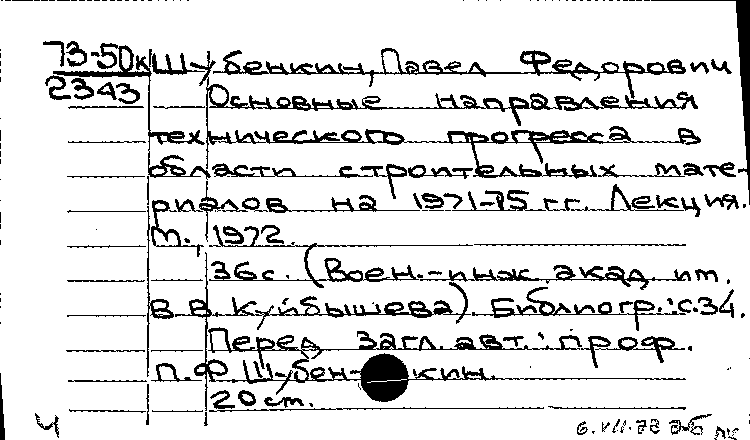 73-50к Шубенкин, Павел Федорович
2343 Основные направления
технического прогресса в
области строительных мате-
риалов на 1971-75 гг. Лекция.
М., 1972.
36 с. (Воен.-инж. акад. им.
В.В. Куйбышева). Библиогр.: с. 34.
Перед загл. авт.: проф.
П.Ф. Шубенкин.
20 ст.
Ч 6.VII.73